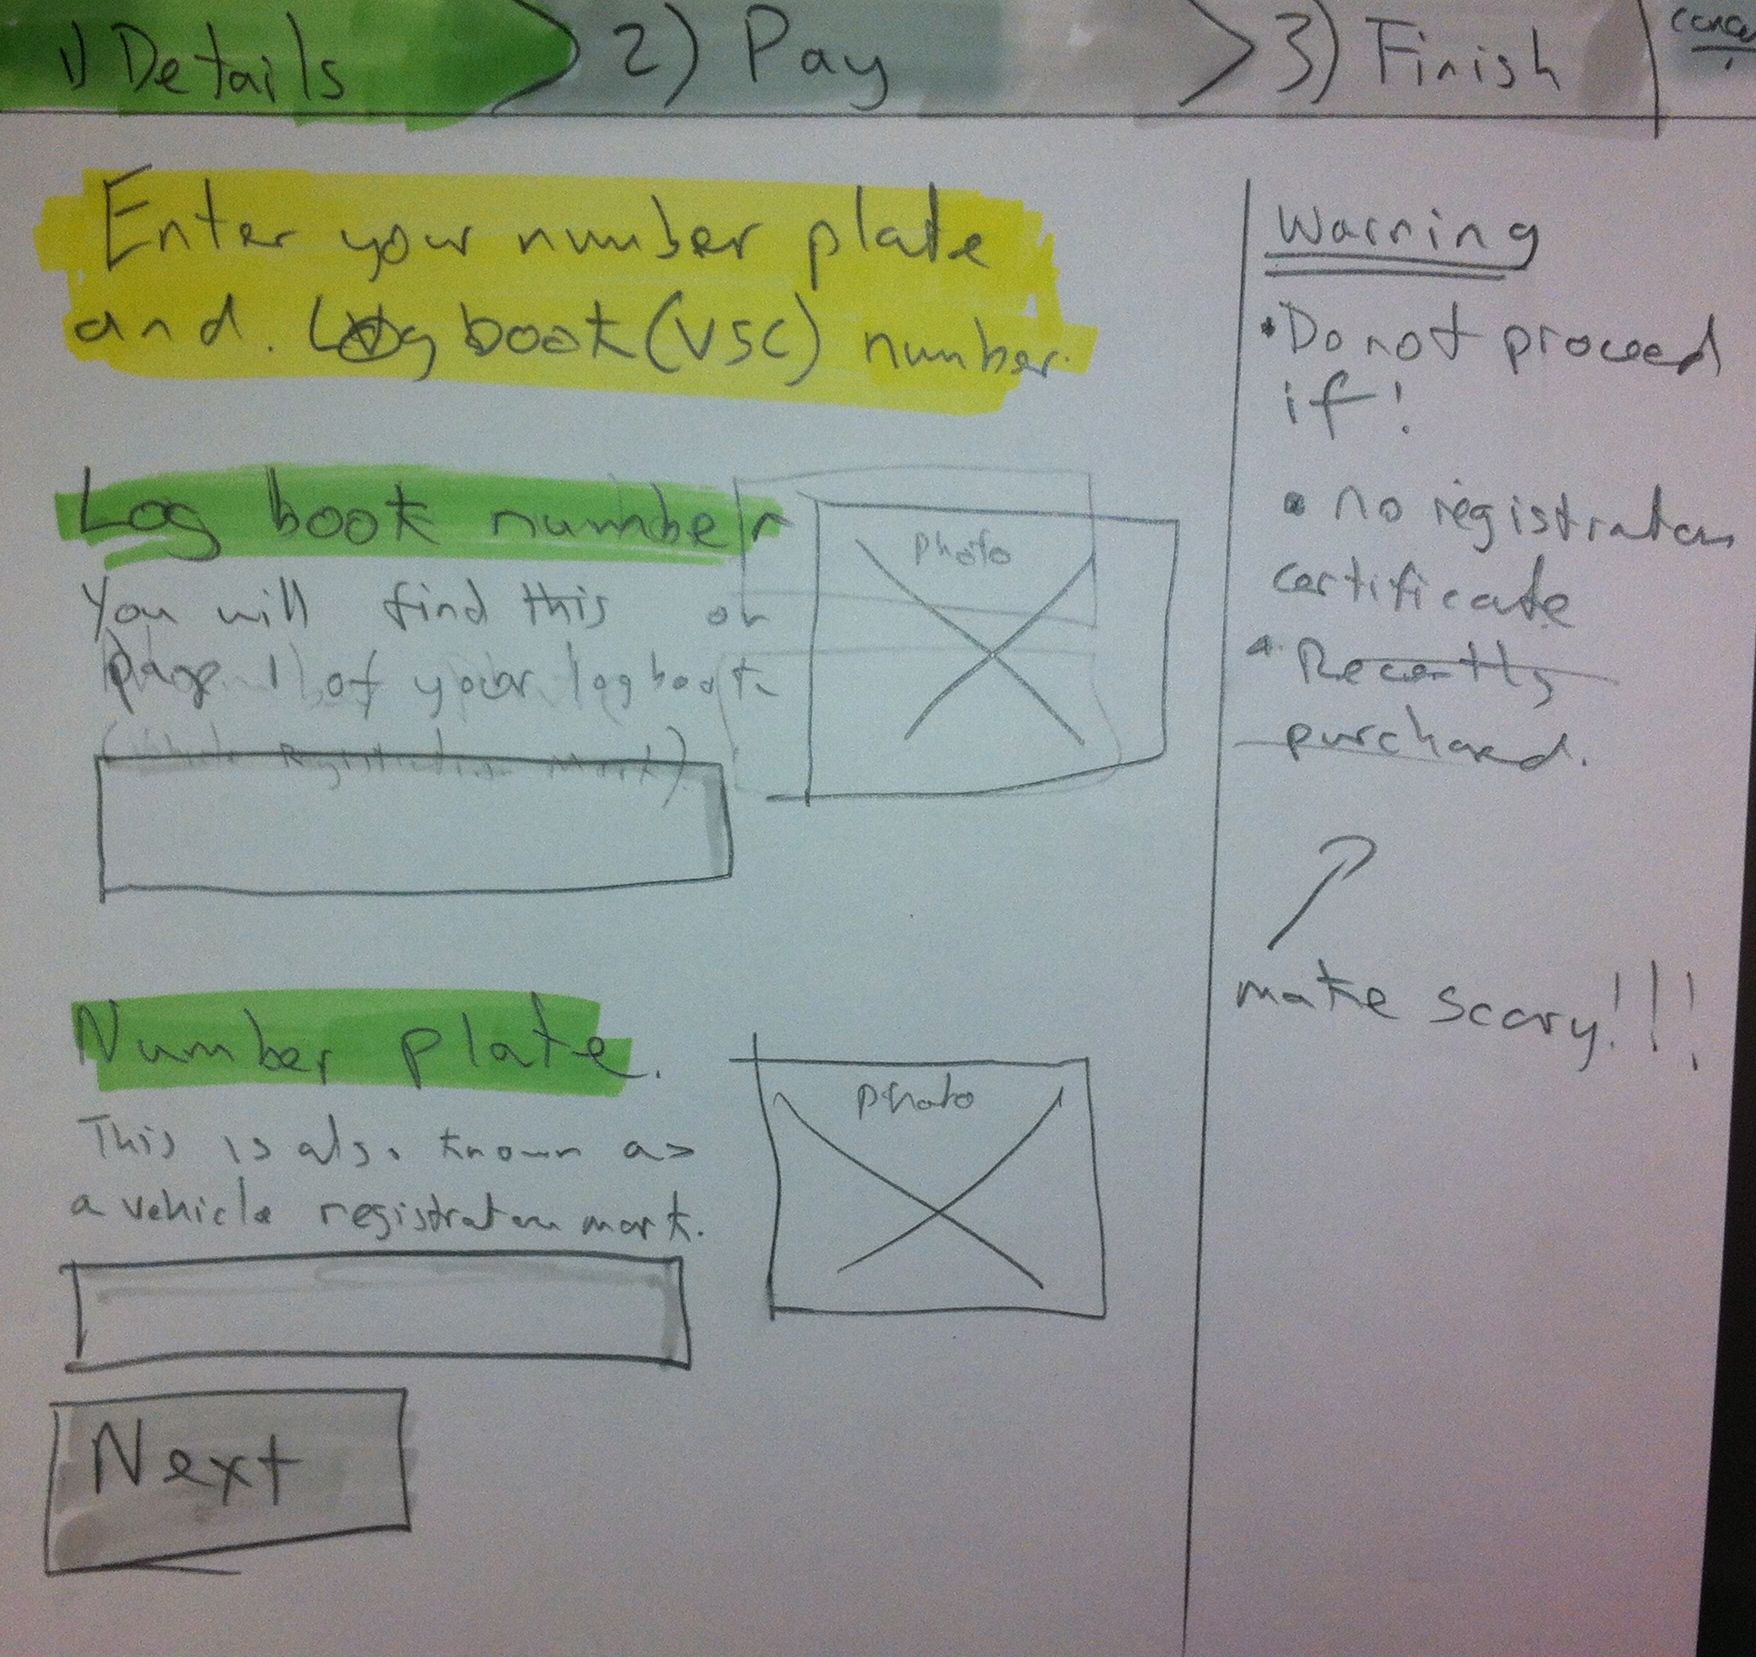 1) Details 2) Pay 3) Finish cance
Enter your number plate
and. Log book (V5C) number.
Log book number
You will find this on
page 1 of your log book.
(Vehicle Registration Mark)
photo
Number plate.
This is also known as
a vehicle registration mark.
photo
Next
Warning
• Do not proceed
if!
• no registration
certificate
• Recently
purchased.
make scary!!!